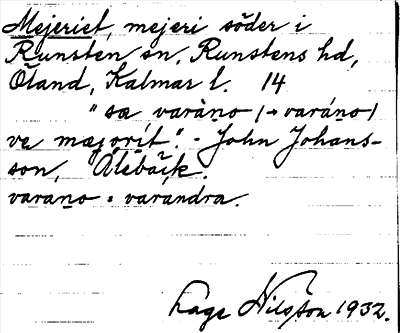 Mejeriet, mejeri söder i
Runsten sn, Runstens hd,
Öland, Kalmar l. 14
"sa varàno (→ varáno)
ve majorit". - John Johans-
son, Ålebäck.
varano = varandra.
Lage Nilsson 1932.